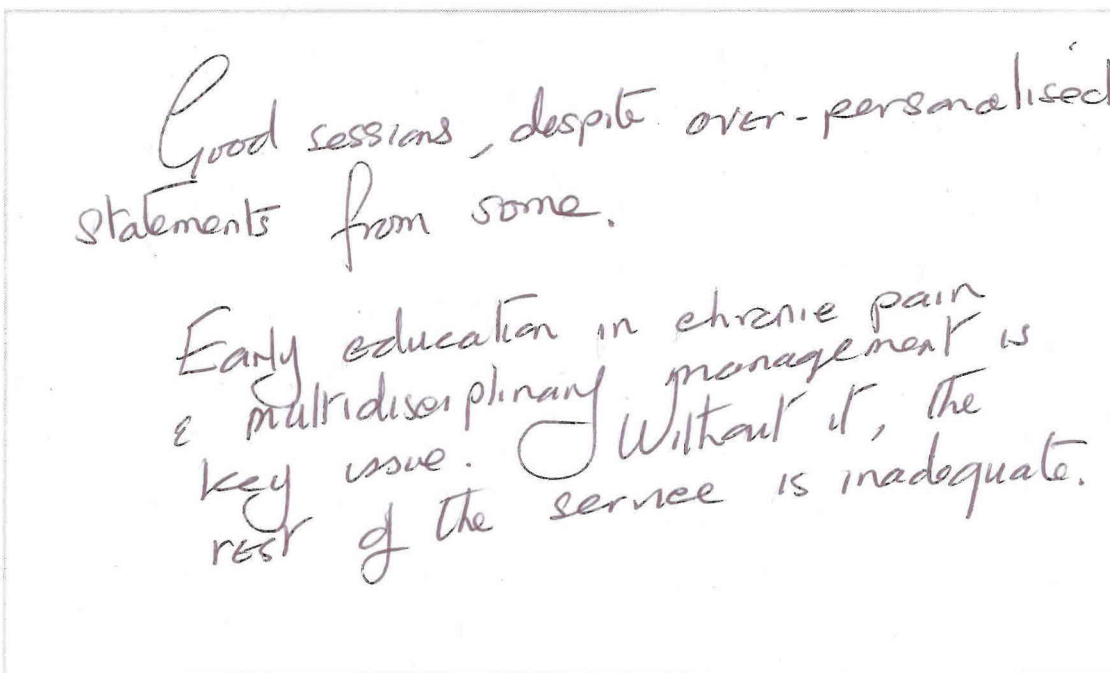 Good sessions, despite over-personalised
statements from some.
Early education in chronic pain
& multidisciplinary management is
key issue. Without it, the
rest of the service is inadequate.